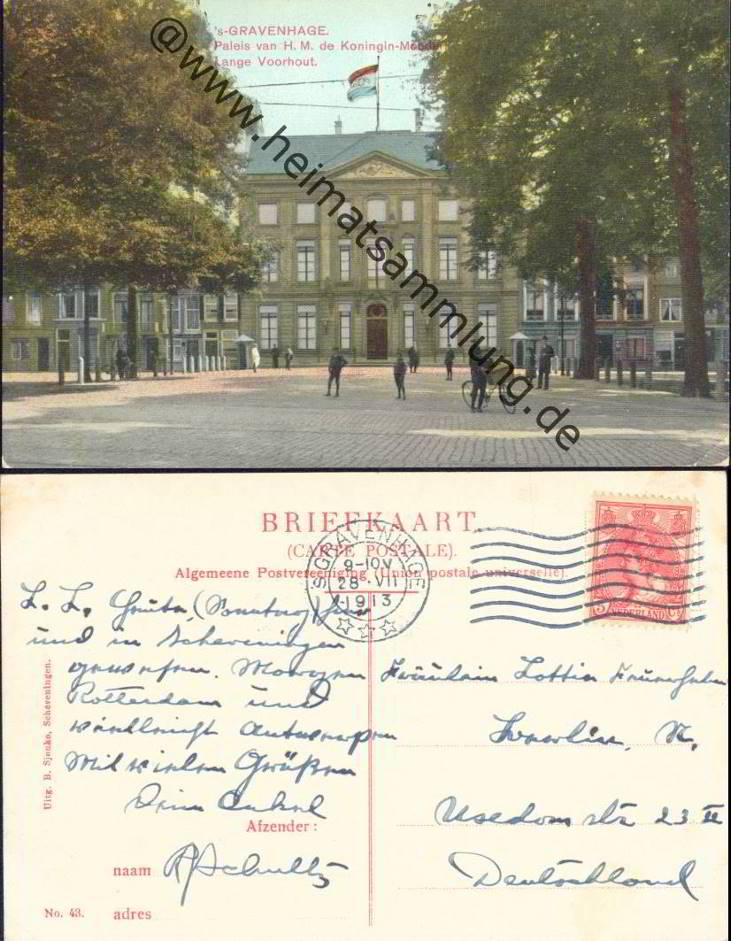 's-GRAVENHAGE.
Paleis van H. M. de Koningin-Moeder
Lange Voorhout.
@www.heimatsammlung.de
BRIEFKAART.
(CARTE POSTALE).
Algemeene Postvereeniging (Union postale universelle).
'S GRAVENHAGE
9-10V
28·VII
1913
5 NEDERLAND Ct
L. L. Heute (Sonntag) hier
und in Scheveningen
gewesen. Morgen
Rotterdam und
vielleicht Antwerpen
Mit vielen Grüßen
Dein Onkel
Afzender:
naam R Schultz
No. 43. adres
Uitg. B. Sjouke, Scheveningen.
Fräulein Lottie
Berlin, N.
Usedomstr 23 II
Deutschland